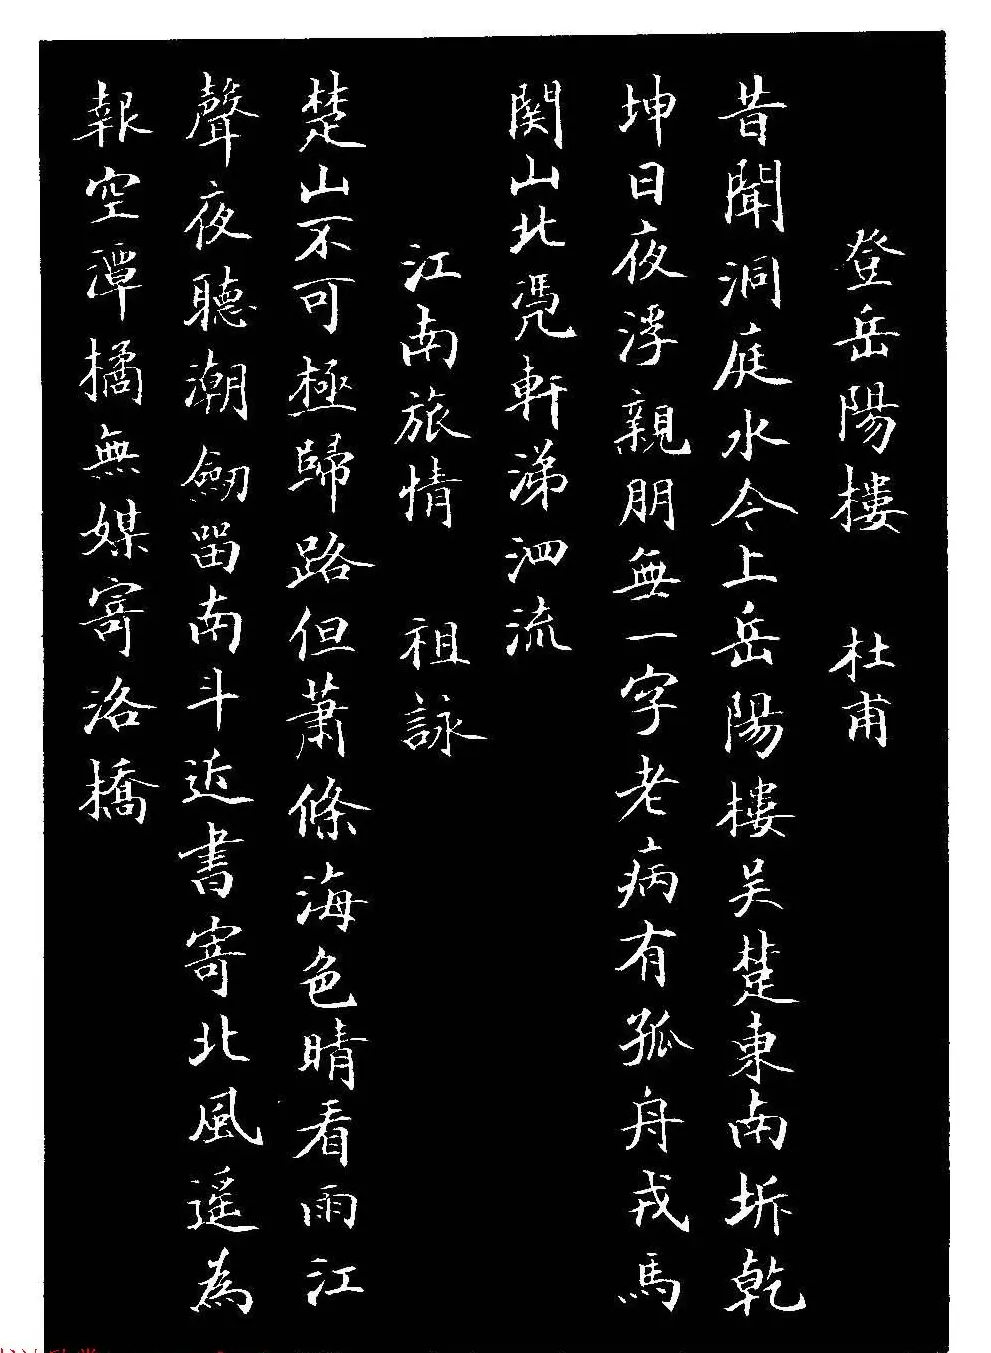 登岳陽樓 杜甫
昔聞洞庭水今上岳陽樓吳楚東南坼乾
坤日夜浮親朋無一字老病有孤舟戎馬
関山北凭軒涕泗流
江南旅情 祖詠
楚山不可極歸路但蕭條海色晴看雨江
聲夜聽潮劒留南斗近書寄北風遥為
報空潭橘無媒寄洛橋